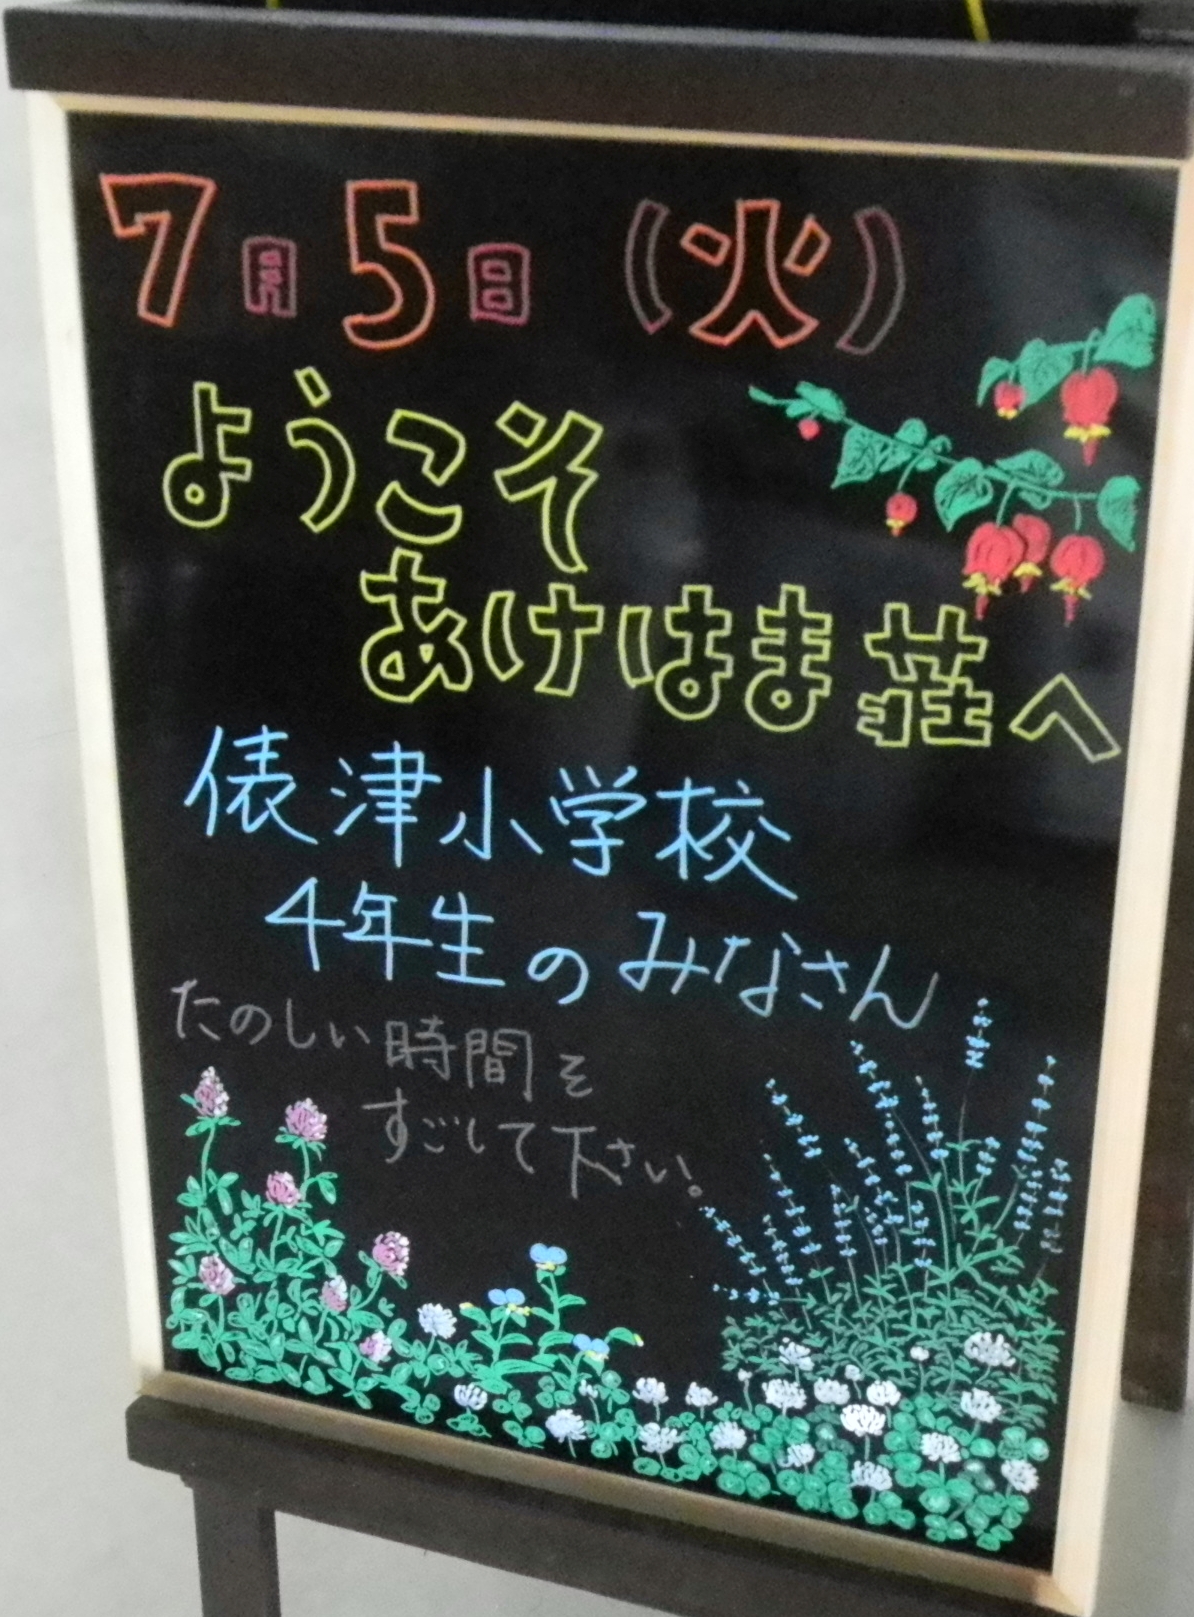 7月5日(火)
ようこそ
あけはま荘へ
俵津小学校
4年生のみなさん
たのしい時間を
すごして下さい。